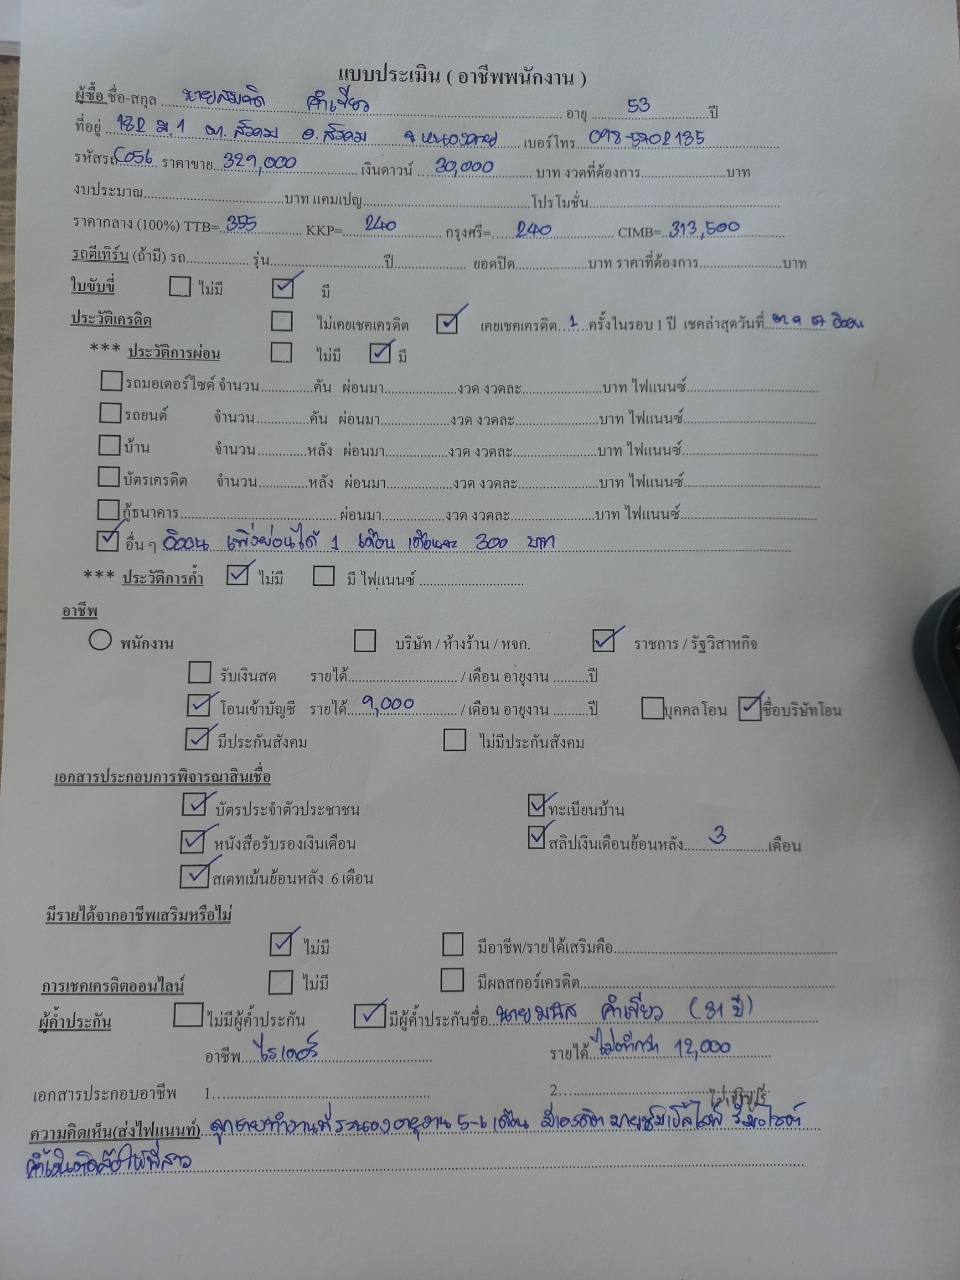 แบบประเมิน ( อาชีพพนักงาน )
ผู้ซื้อ ชื่อ-สกุล นายสมจิต คำเขียว อายุ 53 ปี
ที่อยู่ 132 ม.1 ต. สังคม อ. สังคม จ. หนองคาย เบอร์โทร 093-5702135
รหัสรถ C056 ราคาขาย 329,000 เงินดาวน์ 30,000 บาท งวดที่ต้องการ บาท
งบประมาณ บาท แคมเปญ โปรโมชั่น
ราคากลาง (100%) TTB= 355 KKP= 240 กรุงศรี= 240 CIMB= 313,500
รถตีเทิร์น (ถ้ามี) รถ รุ่น ปี ยอดปิด บาท ราคาที่ต้องการ บาท
ใบขับขี่ ไม่มี มี
ประวัติเครดิต ไม่เคยเชคเครดิต เคยเชคเครดิต 1 ครั้งในรอบ 1 ปี เชคล่าสุดวันที่ ออมสิน
*** ประวัติการผ่อน ไม่มี มี
รถมอเตอร์ไซค์ จำนวน คัน ผ่อนมา งวด งวดละ บาท ไฟแนนซ์
รถยนต์ จำนวน คัน ผ่อนมา งวด งวดละ บาท ไฟแนนซ์
บ้าน จำนวน หลัง ผ่อนมา งวด งวดละ บาท ไฟแนนซ์
บัตรเครดิต จำนวน หลัง ผ่อนมา งวด งวดละ บาท ไฟแนนซ์
กู้ธนาคาร ผ่อนมา งวด งวดละ บาท ไฟแนนซ์
อื่น ๆ ออมสิน เพิ่งผ่อนได้ 1 เดือน เดือนละ 300 บาท
*** ประวัติการค้ำ ไม่มี มี ไฟแนนซ์
อาชีพ
พนักงาน บริษัท / ห้างร้าน / หจก. ราชการ / รัฐวิสาหกิจ
รับเงินสด รายได้ / เดือน อายุงาน ปี
โอนเข้าบัญชี รายได้ 9,000 / เดือน อายุงาน ปี บุคคลโอน ชื่อบริษัทโอน
มีประกันสังคม ไม่มีประกันสังคม
เอกสารประกอบการพิจารณาสินเชื่อ
บัตรประจำตัวประชาชน ทะเบียนบ้าน
หนังสือรับรองเงินเดือน สลิปเงินเดือนย้อนหลัง 3 เดือน
สเตทเม้นย้อนหลัง 6 เดือน
มีรายได้จากอาชีพเสริมหรือไม่
ไม่มี มีอาชีพ/รายได้เสริมคือ
การเชคเครดิตออนไลน์ ไม่มี มีผลสกอร์เครดิต
ผู้ค้ำประกัน ไม่มีผู้ค้ำประกัน มีผู้ค้ำประกันชื่อ นาย คำเขียว (31 ปี)
อาชีพ ไรเดอร์ รายได้ ไม่ต่ำกว่า 12,000
เอกสารประกอบอาชีพ 1. 2.
ความคิดเห็น(ส่งไฟแนนท์) ลูกชายทำงานที่ระนอง อายุงาน 5-6 เดือน มีเครดิต
ให้พี่สาว